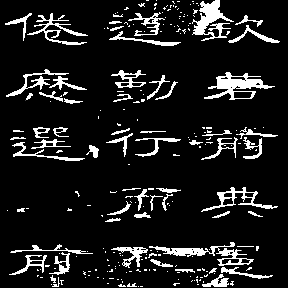 欽若前典憲
道勤行而不
倦歷選前